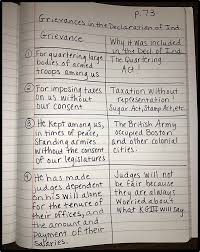 p. 73
Grievances in the Declaration of Ind.
Grievance
Why it was included
in the Decl of Ind
① For quartering large
bodies of armed
troops among us
The Quartering
Act
② For imposing taxes
on us without
our consent
Taxation without
representation
Sugar Act, Stamp Act, etc.
③ He kept among us,
in times of peace,
Standing armies
without the consent
of our legislatures
The British Army
occupied Boston
and other colonial
cities.
④ He has made
judges dependent
on his will alone
for the tenure of
their offices, and
the amount and
payment of their
salaries.
Judges will not
be fair because
they are always
worried about
what KGIII will say.